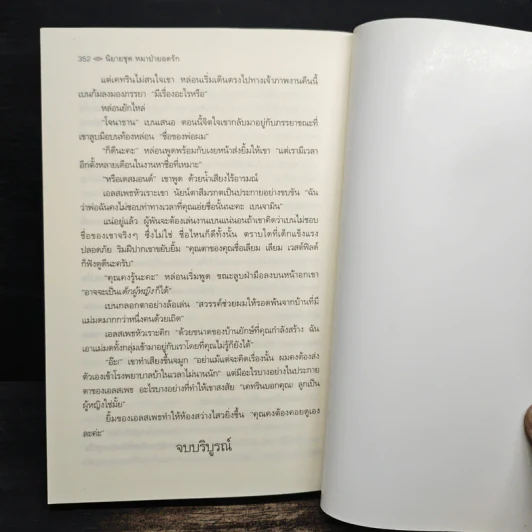 352 นิยายชุด หมาป่ายอดรัก
แต่เคทรินไม่สนใจเขา หล่อนเริ่มเดินตรงไปทางเจ้าภาพงานคืนนี้
เบนก้มลงมองภรรยา "มีเรื่องอะไรหรือ"
หล่อนยักไหล่
"โจนาธาน" เบนเสนอ ตอนนี้จิตใจเขากลับมาอยู่กับภรรยาขณะที่
เขาลูบมือบนท้องหล่อน "ชื่อของพ่อผม"
"ก็ดีนะคะ" หล่อนพูดพร้อมกับเงยหน้าส่งยิ้มให้เขา "แต่เรามีเวลา
อีกตั้งหลายเดือนในงานหาชื่อที่เหมาะ"
"หรือเดสมอนด์" เขาพูด ด้วยน้ำเสียงไร้อารมณ์
เอลสเพธหัวเราะเขา นัยน์ตาสีมรกตเป็นประกายอย่างขบขัน "ฉัน
ว่าพ่อฉันคงไม่ชอบท่าทางเวลาที่คุณเอ่ยชื่อนั้นนะคะ เบนจามิน"
แน่อยู่แล้ว ผู้พันจะต้องเล่นงานเบนแน่นอนถ้าเขาคิดว่าเบนไม่ชอบ
ชื่อของเขาจริงๆ ซึ่งไม่ใช่ ชื่อไหนก็ดีทั้งนั้น ตราบใดที่เด็กแข็งแรง
ปลอดภัย ริมฝีปากเขาขยับยิ้ม "คุณตาของคุณชื่อเลียม เลียม เวสต์ฟิลด์
ก็ฟังดูดีนะครับ"
"คุณคงรู้นะคะ" หล่อนเริ่มพูด ขณะลูบฝ่ามือลงบนหน้าอกเขา
"อาจจะเป็นเด็กผู้หญิงก็ได้"
เบนกลอกตาอย่างล้อเล่น "สวรรค์ช่วยผมให้รอดพ้นจากบ้านที่มี
แม่มดมากกว่าหนึ่งคนด้วยเถิด"
เอลสเพธหัวเราะคิก "ด้วยขนาดของบ้านยักษ์ที่คุณกำลังสร้าง ฉัน
เอาแม่มดทั้งกลุ่มเข้ามาอยู่กับเราโดยที่คุณไม่รู้ก็ยังได้"
"อึ๊ย!" เขาทำเสียงขึ้นจมูก "อย่าแม้แต่จะคิดเรื่องนั้น ผมคงต้องส่ง
ตัวเองเข้าโรงพยาบาลบ้าในเวลาไม่นานนัก" แต่มีอะไรบางอย่างในประกาย
ตาของเอลสเพธ อะไรบางอย่างที่ทำให้เขาสงสัย "เคทรินบอกคุณ ลูกเป็น
ผู้หญิงใช่มั้ย"
ยิ้มของเอลสเพธทำให้ห้องสว่างไสวยิ่งขึ้น "คุณคงต้องคอยดูเอง
ละค่ะ"
จบบริบูรณ์